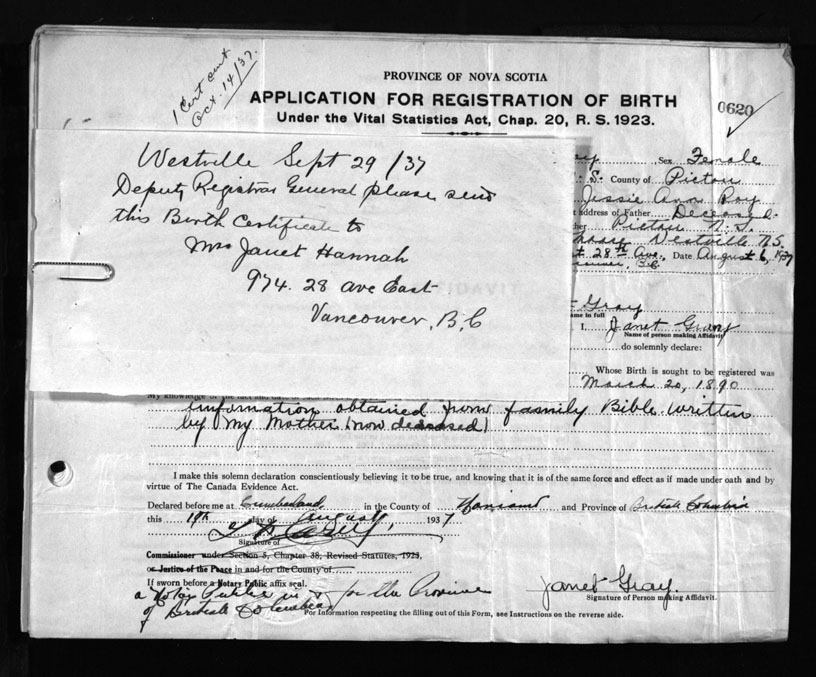 1 Cert sent
Oct. 14/37.
PROVINCE OF NOVA SCOTIA
APPLICATION FOR REGISTRATION OF BIRTH
Under the Vital Statistics Act, Chap. 20, R. S. 1923.
0620
Westville Sept 29/37
Deputy Registrar General please send
this Birth Certificate to
Mrs Janet Hannah
974. 28 ave East
Vancouver, B.C
Sex Female
S. County of Pictou
Jessie Ann Roy
address of Father Deceased
Pictou N.S.
Westville N.S.
28th Ave., Date August 6, 1937
Gray
ame in full
I, Janet Gray
Name of person making Affidavit
do solemnly declare:
Whose Birth is sought to be registered was
March 20, 1890
My knowledge of the
information obtained from family Bible written
by my Mother (now deceased)
I make this solemn declaration conscientiously believing it to be true, and knowing that it is of the same force and effect as if made under oath and by
virtue of The Canada Evidence Act.
Declared before me at Cumberland in the County of and Province of British Columbia
this day of August, 1937
Signature of
Commissioner under Section 5, Chapter 38, Revised Statutes, 1923,
or Justice of the Peace in and for the County of
If sworn before a Notary Public affix seal.
a Notary Public in & for the Province
of British Columbia
Janet Gray.
Signature of Person making Affidavit.
For Information respecting the filling out of this Form, see Instructions on the reverse side.